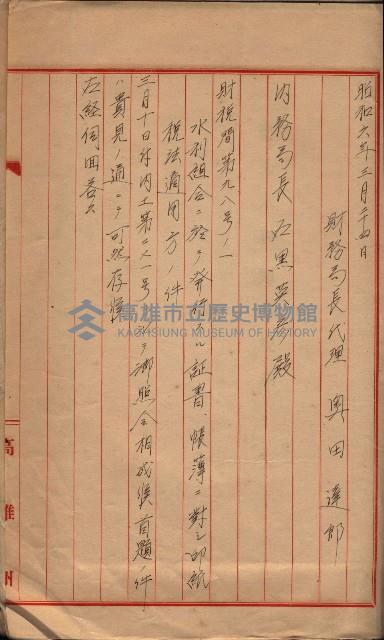 昭和六年三月二十四日
財務局長代理 奥田達郎
内務局長 石黒英彦殿
財税間第九八号ノ一
水利組合ニ於テ発行スル証書、帳薄ニ対シ印紙
税法適用方ノ件
三月十日付内土第二八一号ヲ以テ御照会相成候首題ノ件
ハ貴見ノ通ニテ可然存候
左経伺回答ス
高雄州
高雄市立歷史博物館
KAOHSIUNG MUSEUM OF HISTORY